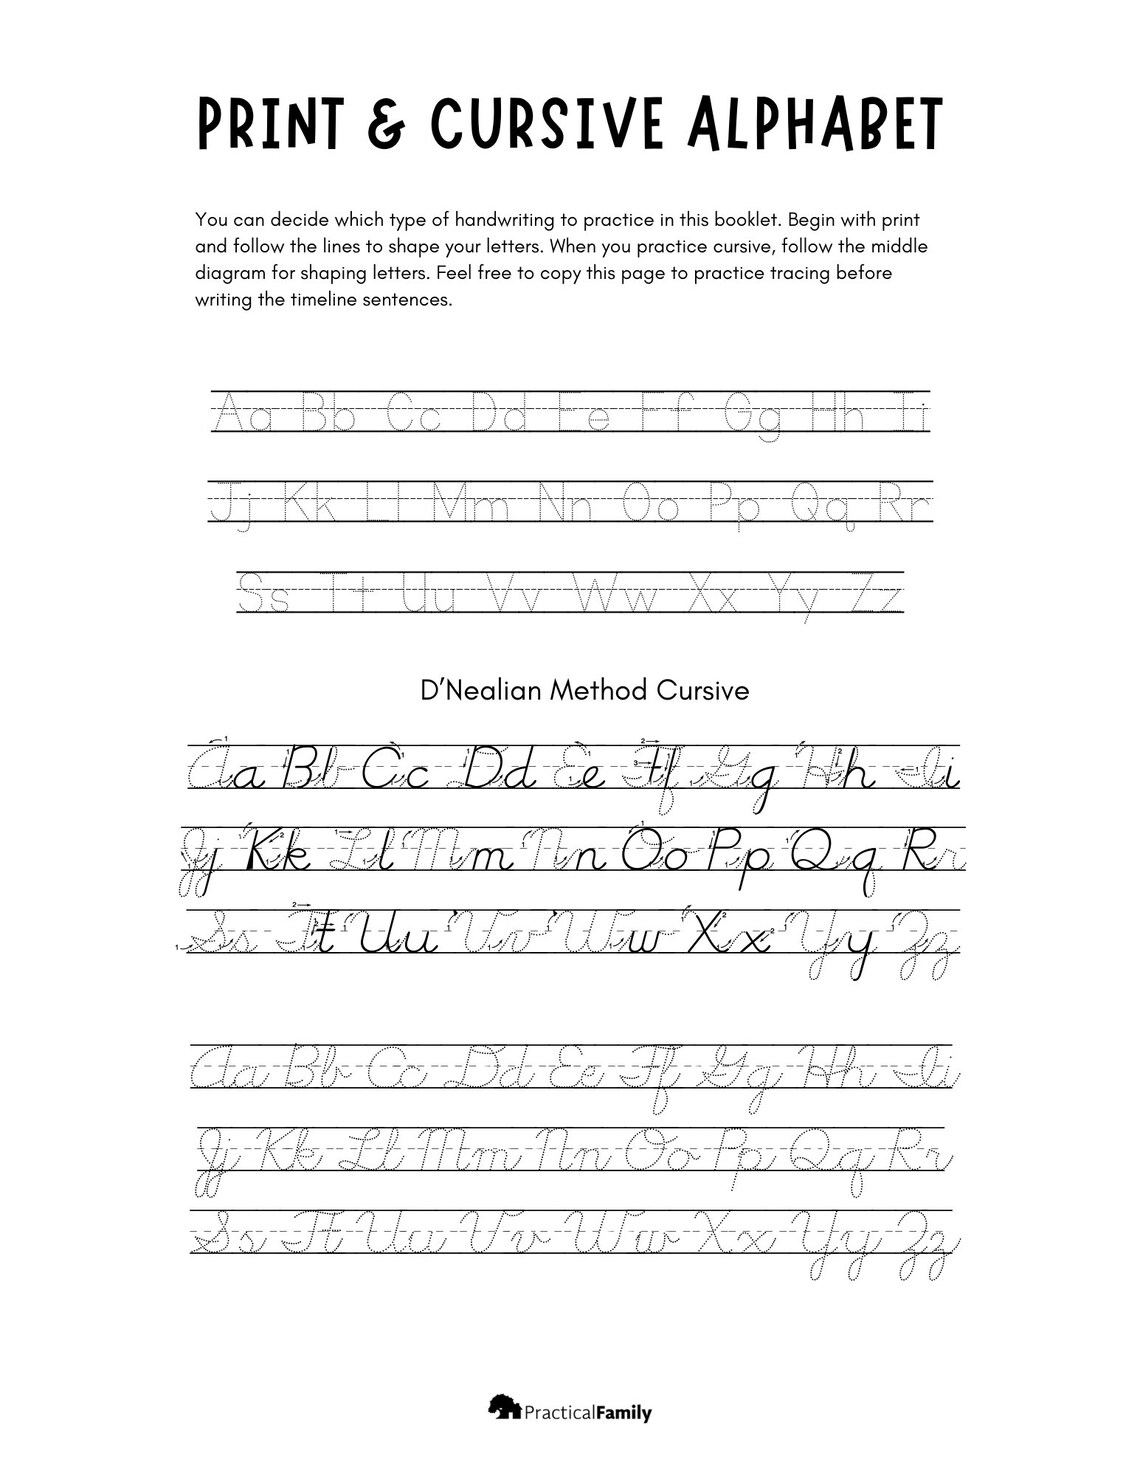 PRINT & CURSIVE ALPHABET
You can decide which type of handwriting to practice in this booklet. Begin with print
and follow the lines to shape your letters. When you practice cursive, follow the middle
diagram for shaping letters. Feel free to copy this page to practice tracing before
writing the timeline sentences.
Aa Bb Cc Dd Ee Ff Gg Hh Ii
Jj Kk Ll Mm Nn Oo Pp Qq Rr
Ss Tt Uu Vv Ww Xx Yy Zz
D'Nealian Method Cursive
Aa Bb Cc Dd Ee Ff Gg Hh Ii
Jj Kk Ll Mm Nn Oo Pp Qq Rr
Ss Tt Uu Vv Ww Xx Yy Zz
Aa Bb Cc Dd Ee Ff Gg Hh Ii
Jj Kk Ll Mm Nn Oo Pp Qq Rr
Ss Tt Uu Vv Ww Xx Yy Zz
PracticalFamily